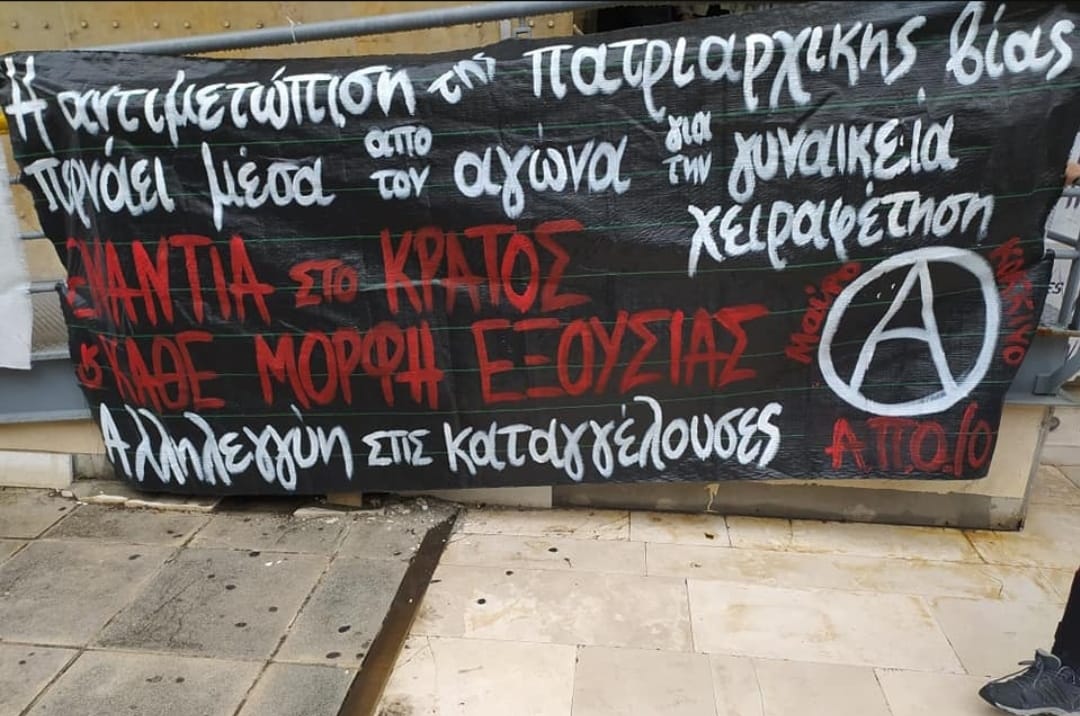 Η αντιμετώπιση της πατριαρχικής βίας
περνάει μέσα από τον αγώνα για την γυναικεία
χειραφέτηση
ΕΝΑΝΤΙΑ ΣΤΟ ΚΡΑΤΟΣ
& ΚΑΘΕ ΜΟΡΦΗ ΕΞΟΥΣΙΑΣ
Αλληλεγγύη στις καταγγέλουσες
Μαύρο
Α
Κόκκινο
Α.Π.Ο./Ο